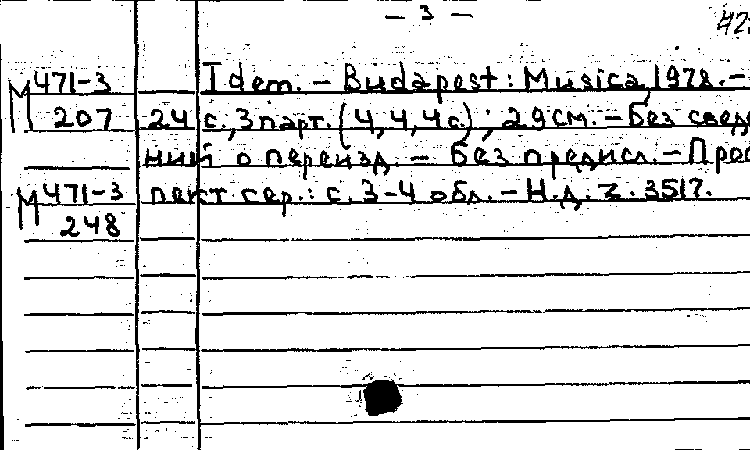 — 3 —
42
М 471-3 Idem. – Budapest: Musica, 1978. –
207 24 с., 3 парт. (4, 4, 4 с.) ; 29 см. – Без сведе
ний о переизд. – Без предисл. – Прос
М 471-3 пект сер.: с. 3-4 обл. – Н.д. Z. 3517.
248